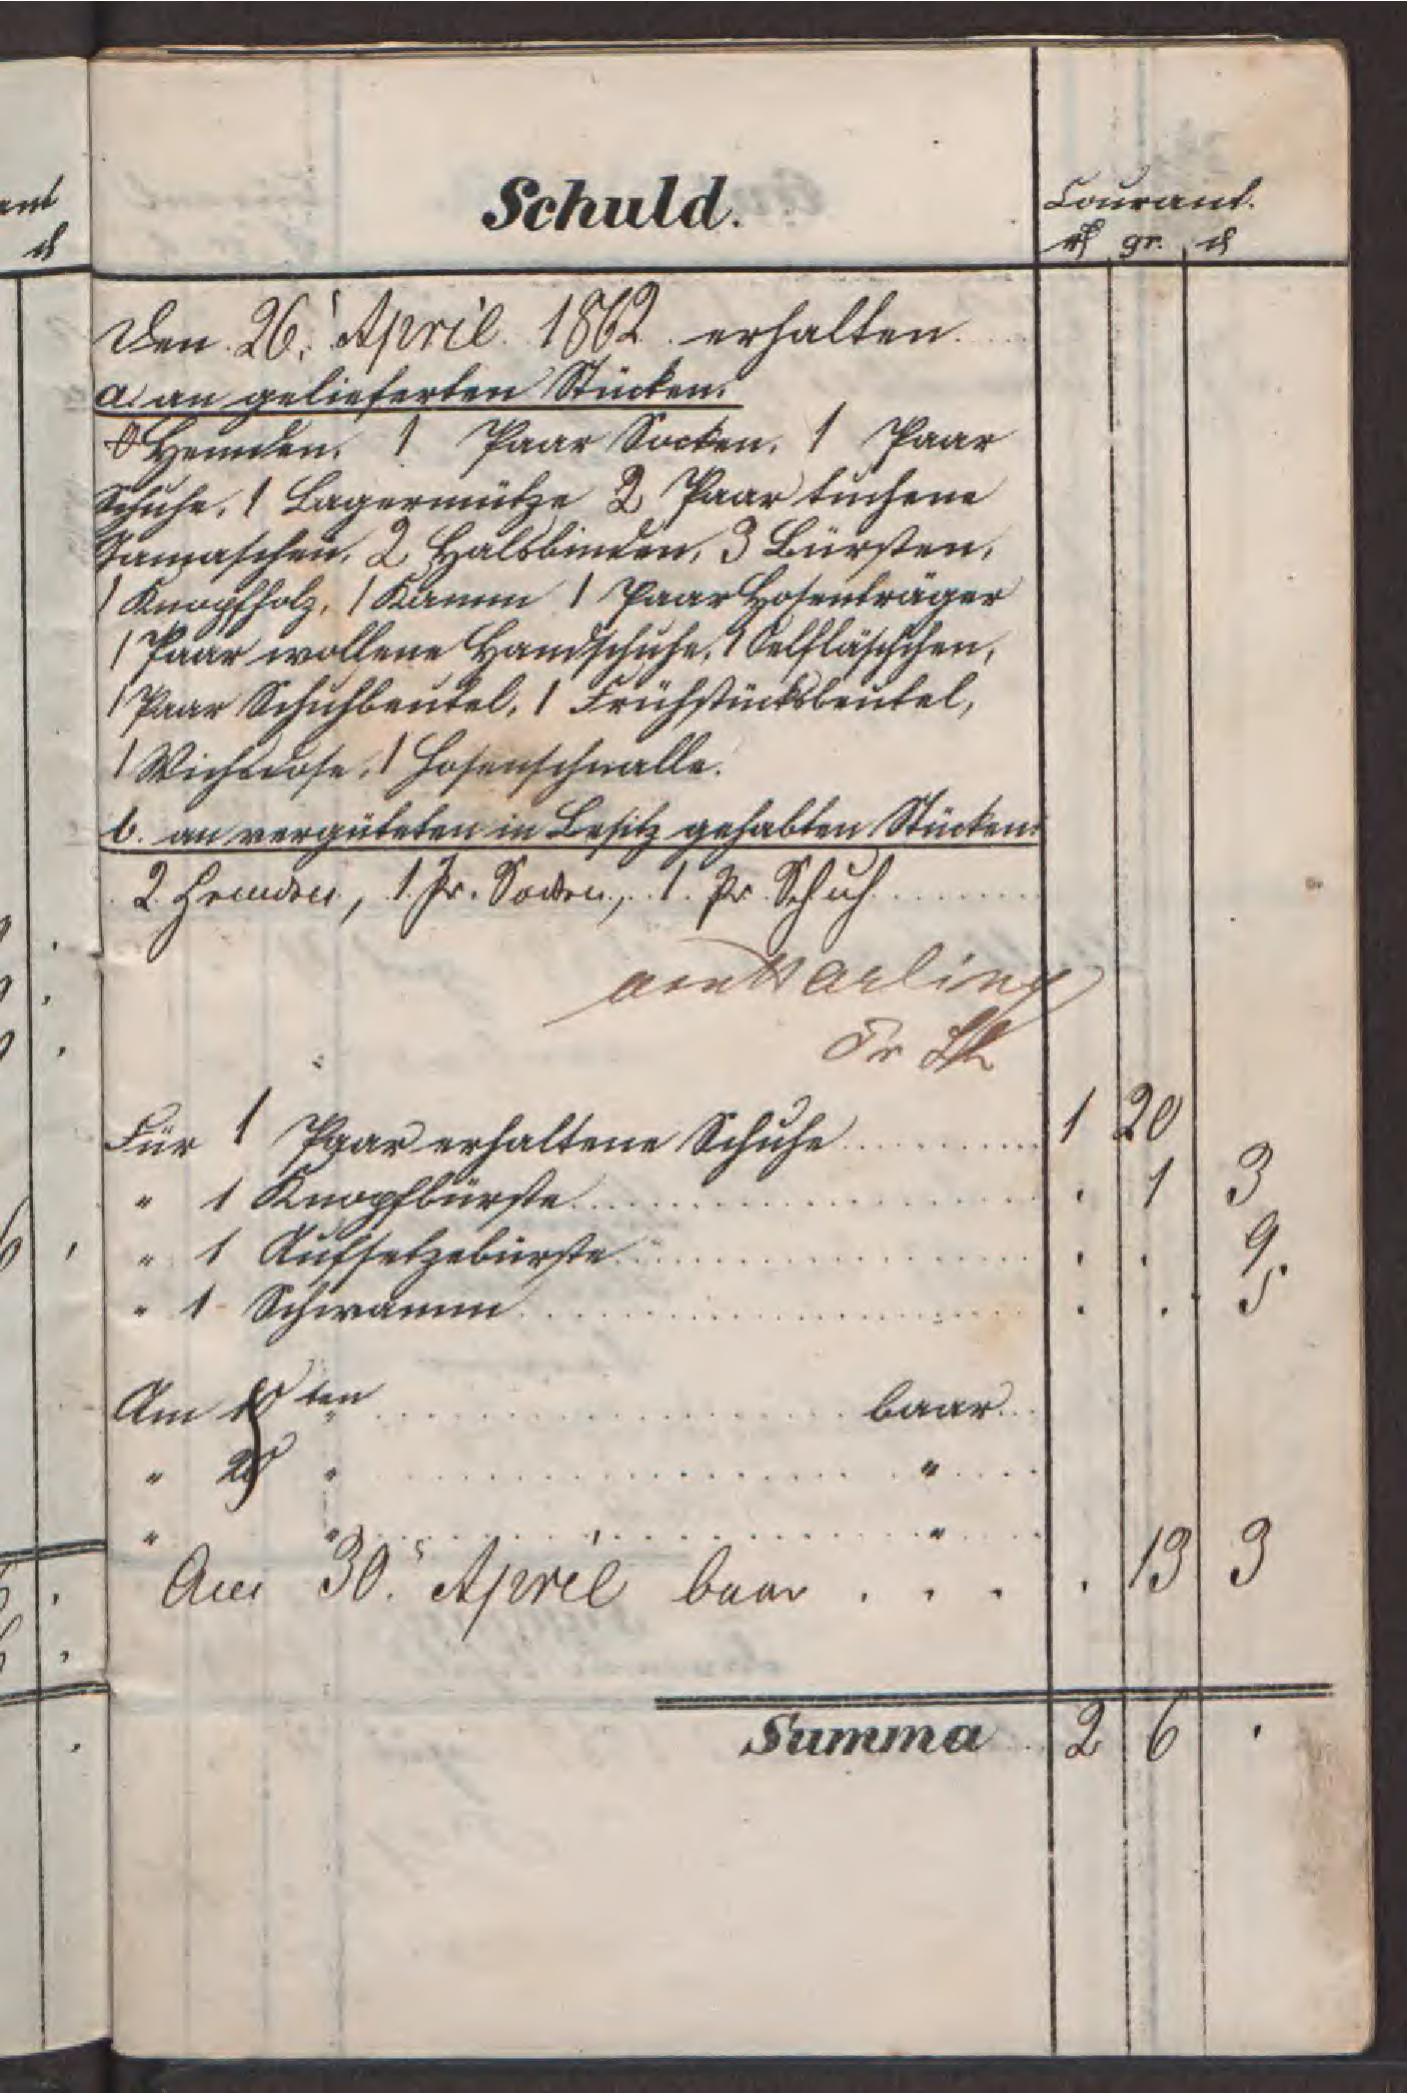 Schuld.
Courant.
rf gr. d
Den 26. April 1862 erhalten
a. an gelieferten Stücken.
0 Hemden, 1 Paar Socken, 1 Paar
Schuhe, 1 Lagermütze 2 Paar tuchene
Gamaschen, 2 Halsbinden, 3 Bürsten,
1 Knopfholz, 1 Kamm 1 Paar Hosenträger
1 Paar wollene Handschuhe, 1 Oelfläschchen,
1 Paar Schuhbeutel, 1 Frühstücksbeutel,
1 Wichsdose, 1 Hosenschnalle.
b. an vergüteten in Besitz gehabten Stücken:
2 Hemden, 1 Pr. Socken, 1 Pr Schuh
Für 1 Paar erhaltene Schuhe 1 20
" 1 Knopfbürste . 1 3
" 1 Aufsetzebürste . . 9.
" 1 Schwamm . . 5
Am 10ten " baar
" 20 " "
" " "
Am 30. April baar . . . . 13 3
Summa 2 6 .